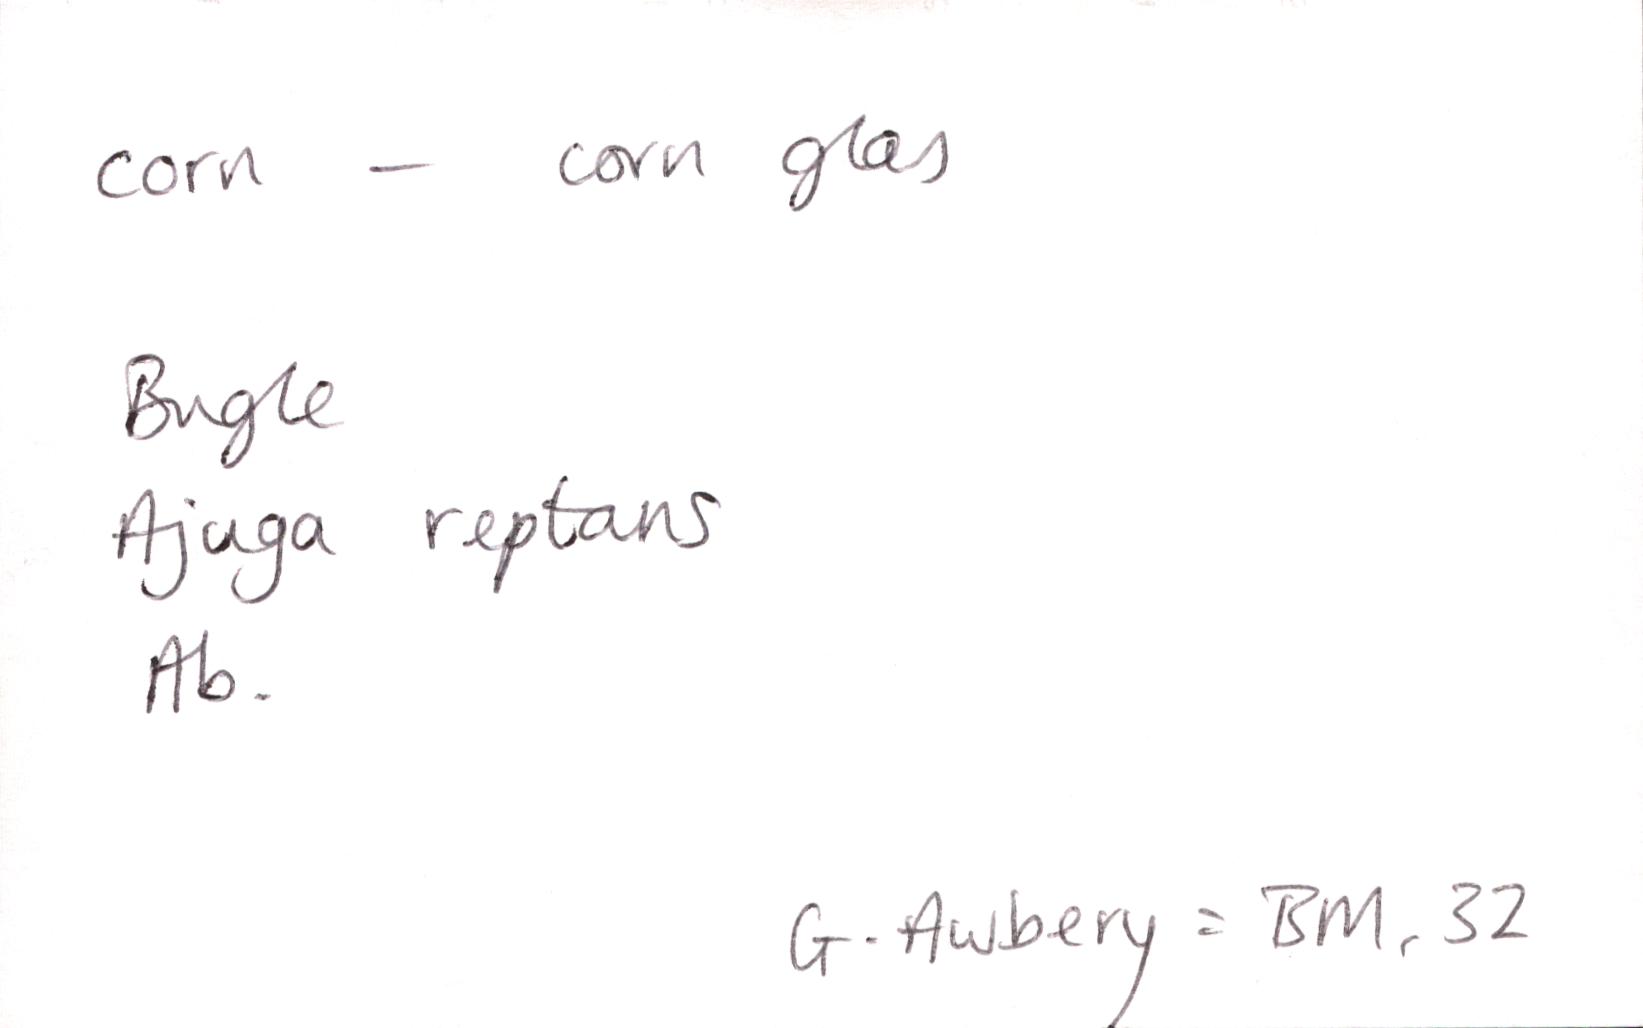 corn — corn glas
Bugle
Ajuga reptans
Ab.
G. Awbery = BM, 32